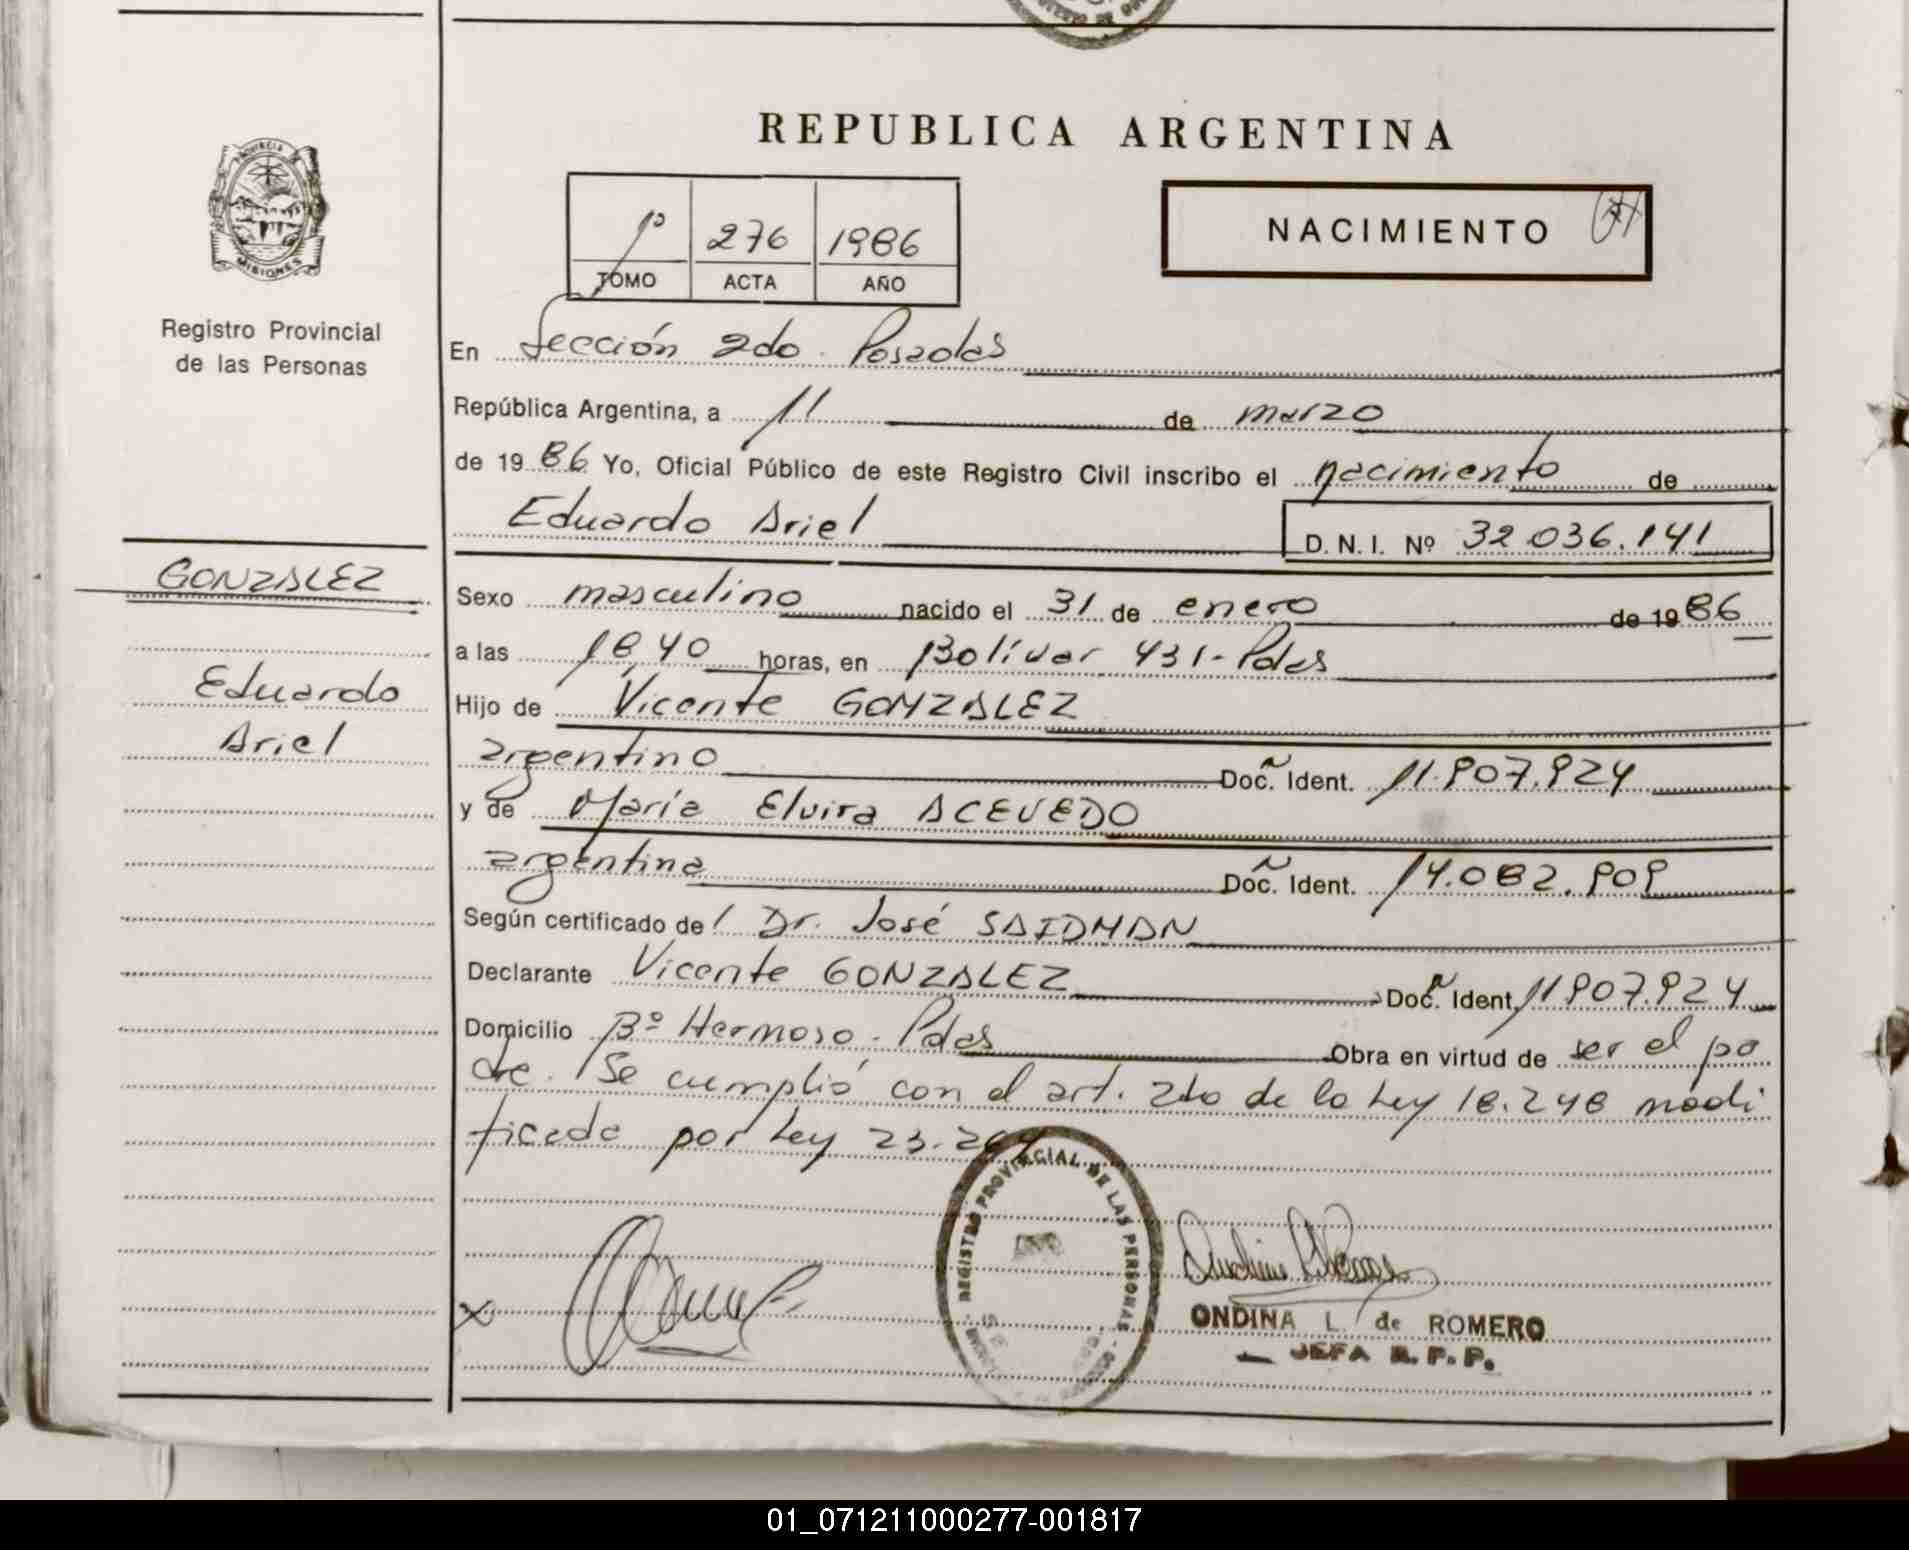 REPUBLICA ARGENTINA
PROVINCIA DE
MISIONES
Registro Provincial
de las Personas
1º 276 1986
TOMO ACTA AÑO
NACIMIENTO
En Sección 2do. Posadas
República Argentina, a 11 de marzo
de 1986 Yo, Oficial Público de este Registro Civil inscribo el nacimiento de
Eduardo Ariel D. N. I. Nº 32.036.141
GONZALEZ
Eduardo
Ariel
Sexo masculino nacido el 31 de enero de 1986
a las 18 40 horas, en Bolívar 431 - Pdas
Hijo de Vicente GONZALEZ
argentino Doc. Ident. 11.907.924
y de María Elvira ACEVEDO
argentina Doc. Ident. 14.082.909
Según certificado de Dr. José SAIDMAN
Declarante Vicente GONZALEZ Doc. Ident. 11907.924
Domicilio Bº Hermoso - Pdas Obra en virtud de ser el pa
dre. Se cumplió con el art. 2do de la Ley 18.248 modi
ficada por Ley 23.264
REGISTRO PROVINCIAL DE LAS PERSONAS
ONDINA L. de ROMERO
JEFA R. P. P.
01_071211000277-001817